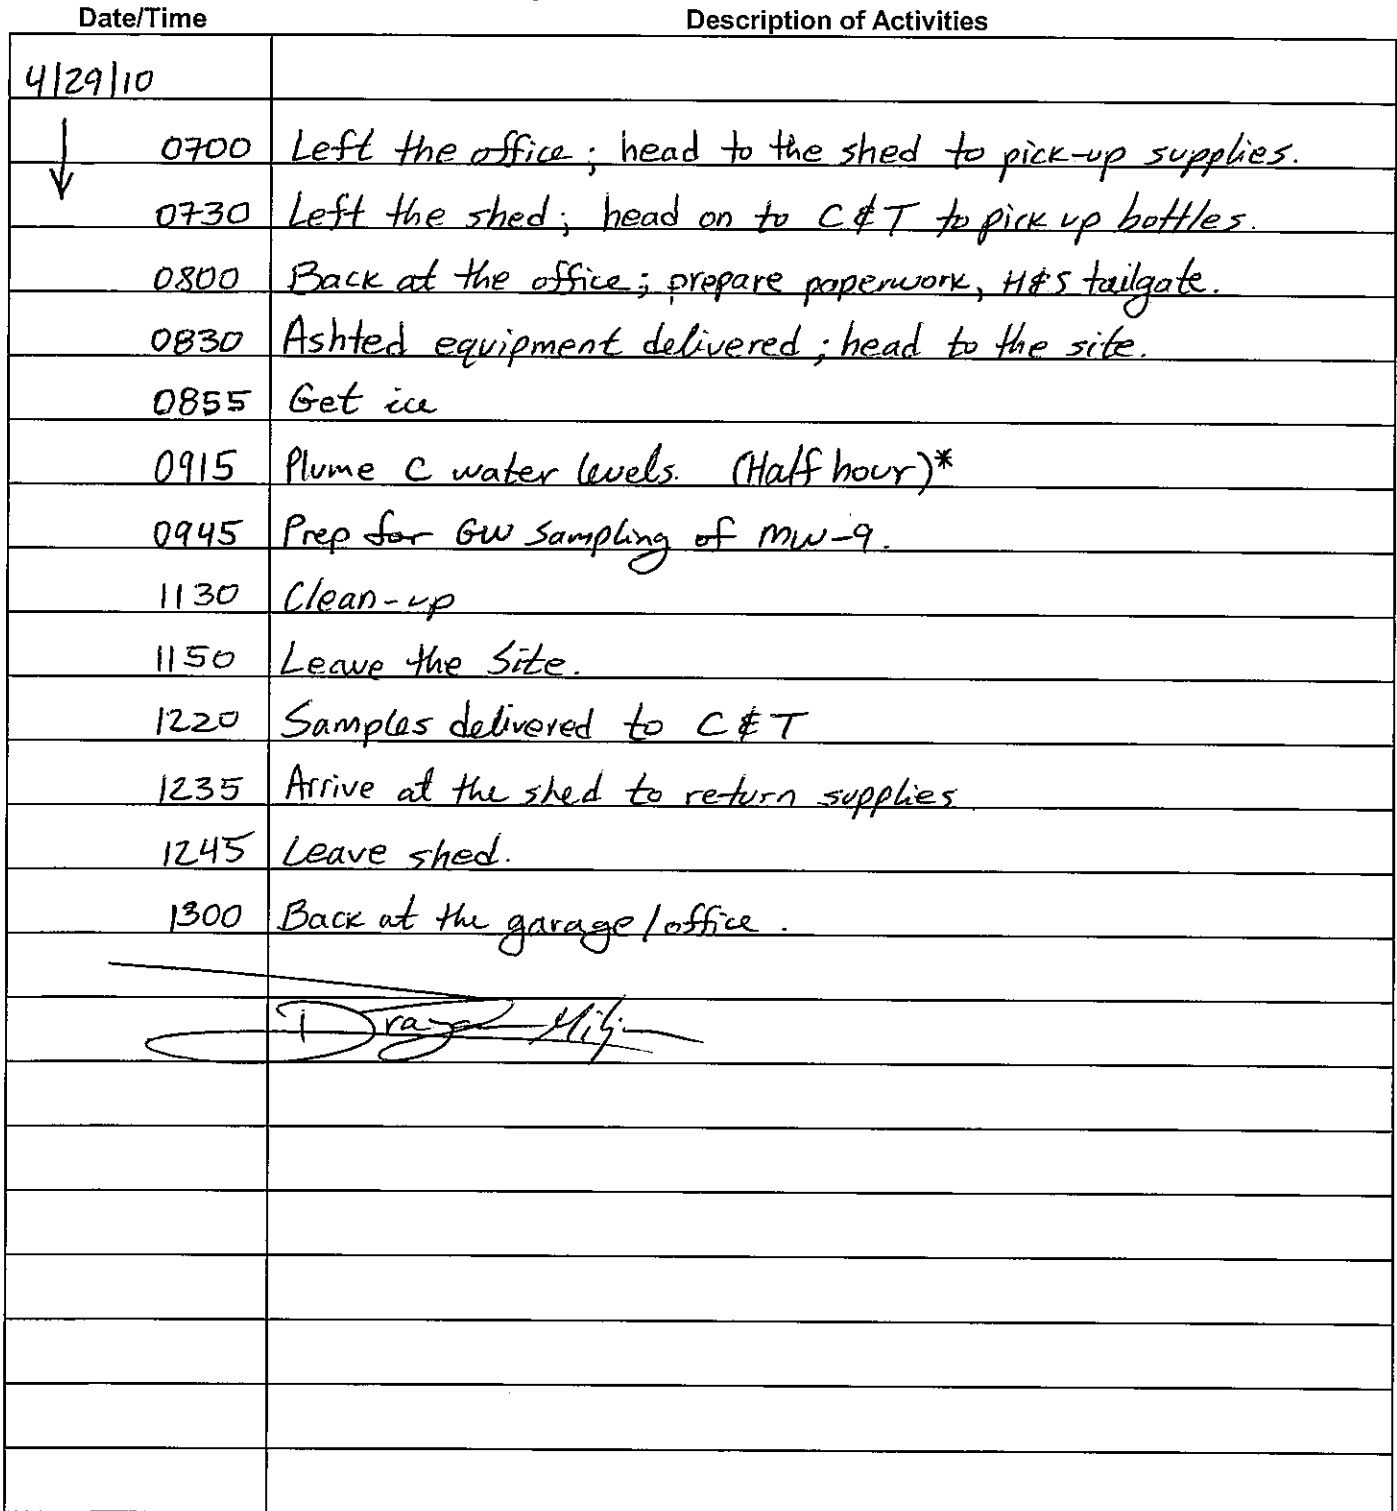 Date/Time Description of Activities
4/29/10
0700 Left the office; head to the shed to pick-up supplies.
0730 Left the shed; head on to C&T to pick up bottles.
0800 Back at the office; prepare paperwork, H&S tailgate.
0830 Ashted equipment delivered; head to the site.
0855 Get ice
0915 Plume C water levels. (Half hour)*
0945 Prep for GW sampling of MW-9.
1130 Clean-up
1150 Leave the Site.
1220 Samples delivered to C&T
1235 Arrive at the shed to return supplies
1245 Leave shed.
1300 Back at the garage/office.